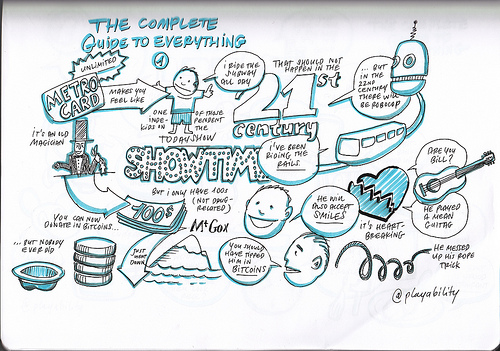 THE COMPLETE
GUIDE TO EVERYTHING
1
UNLIMITED
METRO
CARD
MAKES YOU
FEEL LIKE
I RIDE THE
SUBWAY
ALL DAY
ONE OF THOSE
INDE- PENDENT
KIDS ON THE
TODAY SHOW
THAT SHOULD NOT
HAPPEN IN THE
21st
century
... BUT
IN THE
22ND
CENTURY
THERE WILL
BE ROBOCOP
IT'S AN OLD
MAGICIAN
SHOWTIME
I'VE BEEN
RIDING THE
RAILS.
ARE YOU
BILL?
BUT I ONLY HAVE 100s
(NOT DRUG-
RELATED)
100$
McGOX
HE WILL
ALSO ACCEPT
SMILES
IT'S HEART-
BREAKING
HE PLAYED
A MEAN
GUITAG
YOU CAN NOW
DONATE IN BITCOINS...
... BUT NOBODY
EVER DID
JUST
WENT
DOWN
YOU SHOULD
HAVE TIPPED
HIM IN
BITCOINS
HE MESSED
UP HIS ROPE
TRICK
@playability